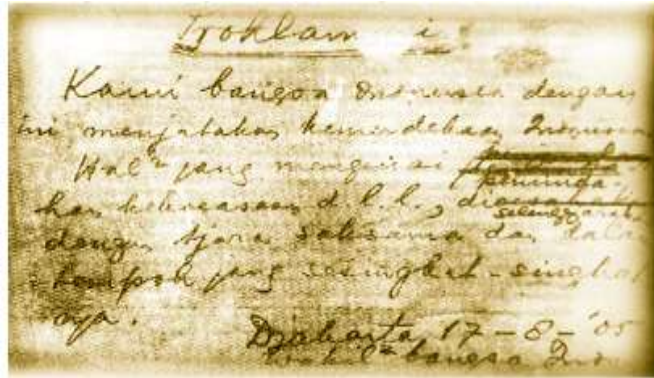 Proklam i
Kami bangsa Indonesia dengan
ini menjatakan kemerdekaan Indonesia
Hal² jang mengenai
peminda
kan kekoeasaan d.l.l.,
selenggaraka
dengan tjara saksama dan dalam
tempoh jang sesingkat-singkat
nja.
Djakarta, 17-8-'05
Wakil² bangsa Indo